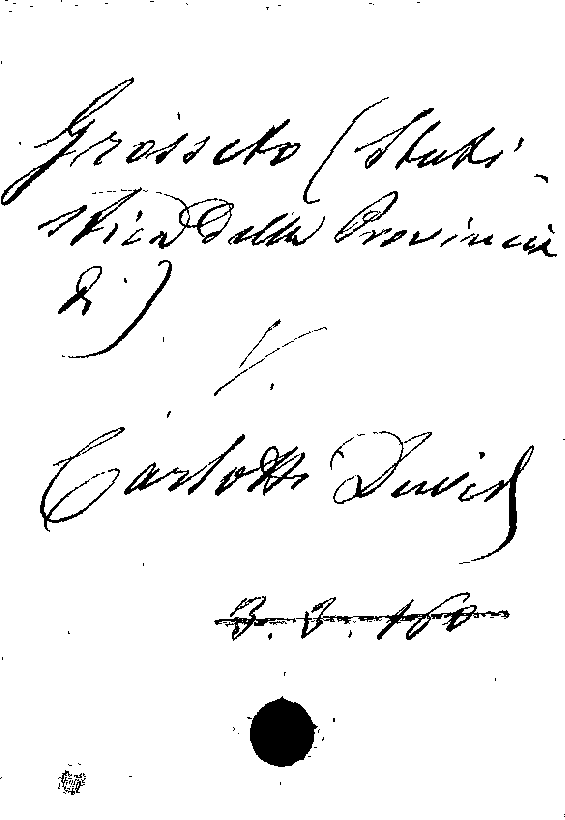 Grosseto (Stati-
stica della Provincia
di)
V.
Carlotti David
3. 3. 160